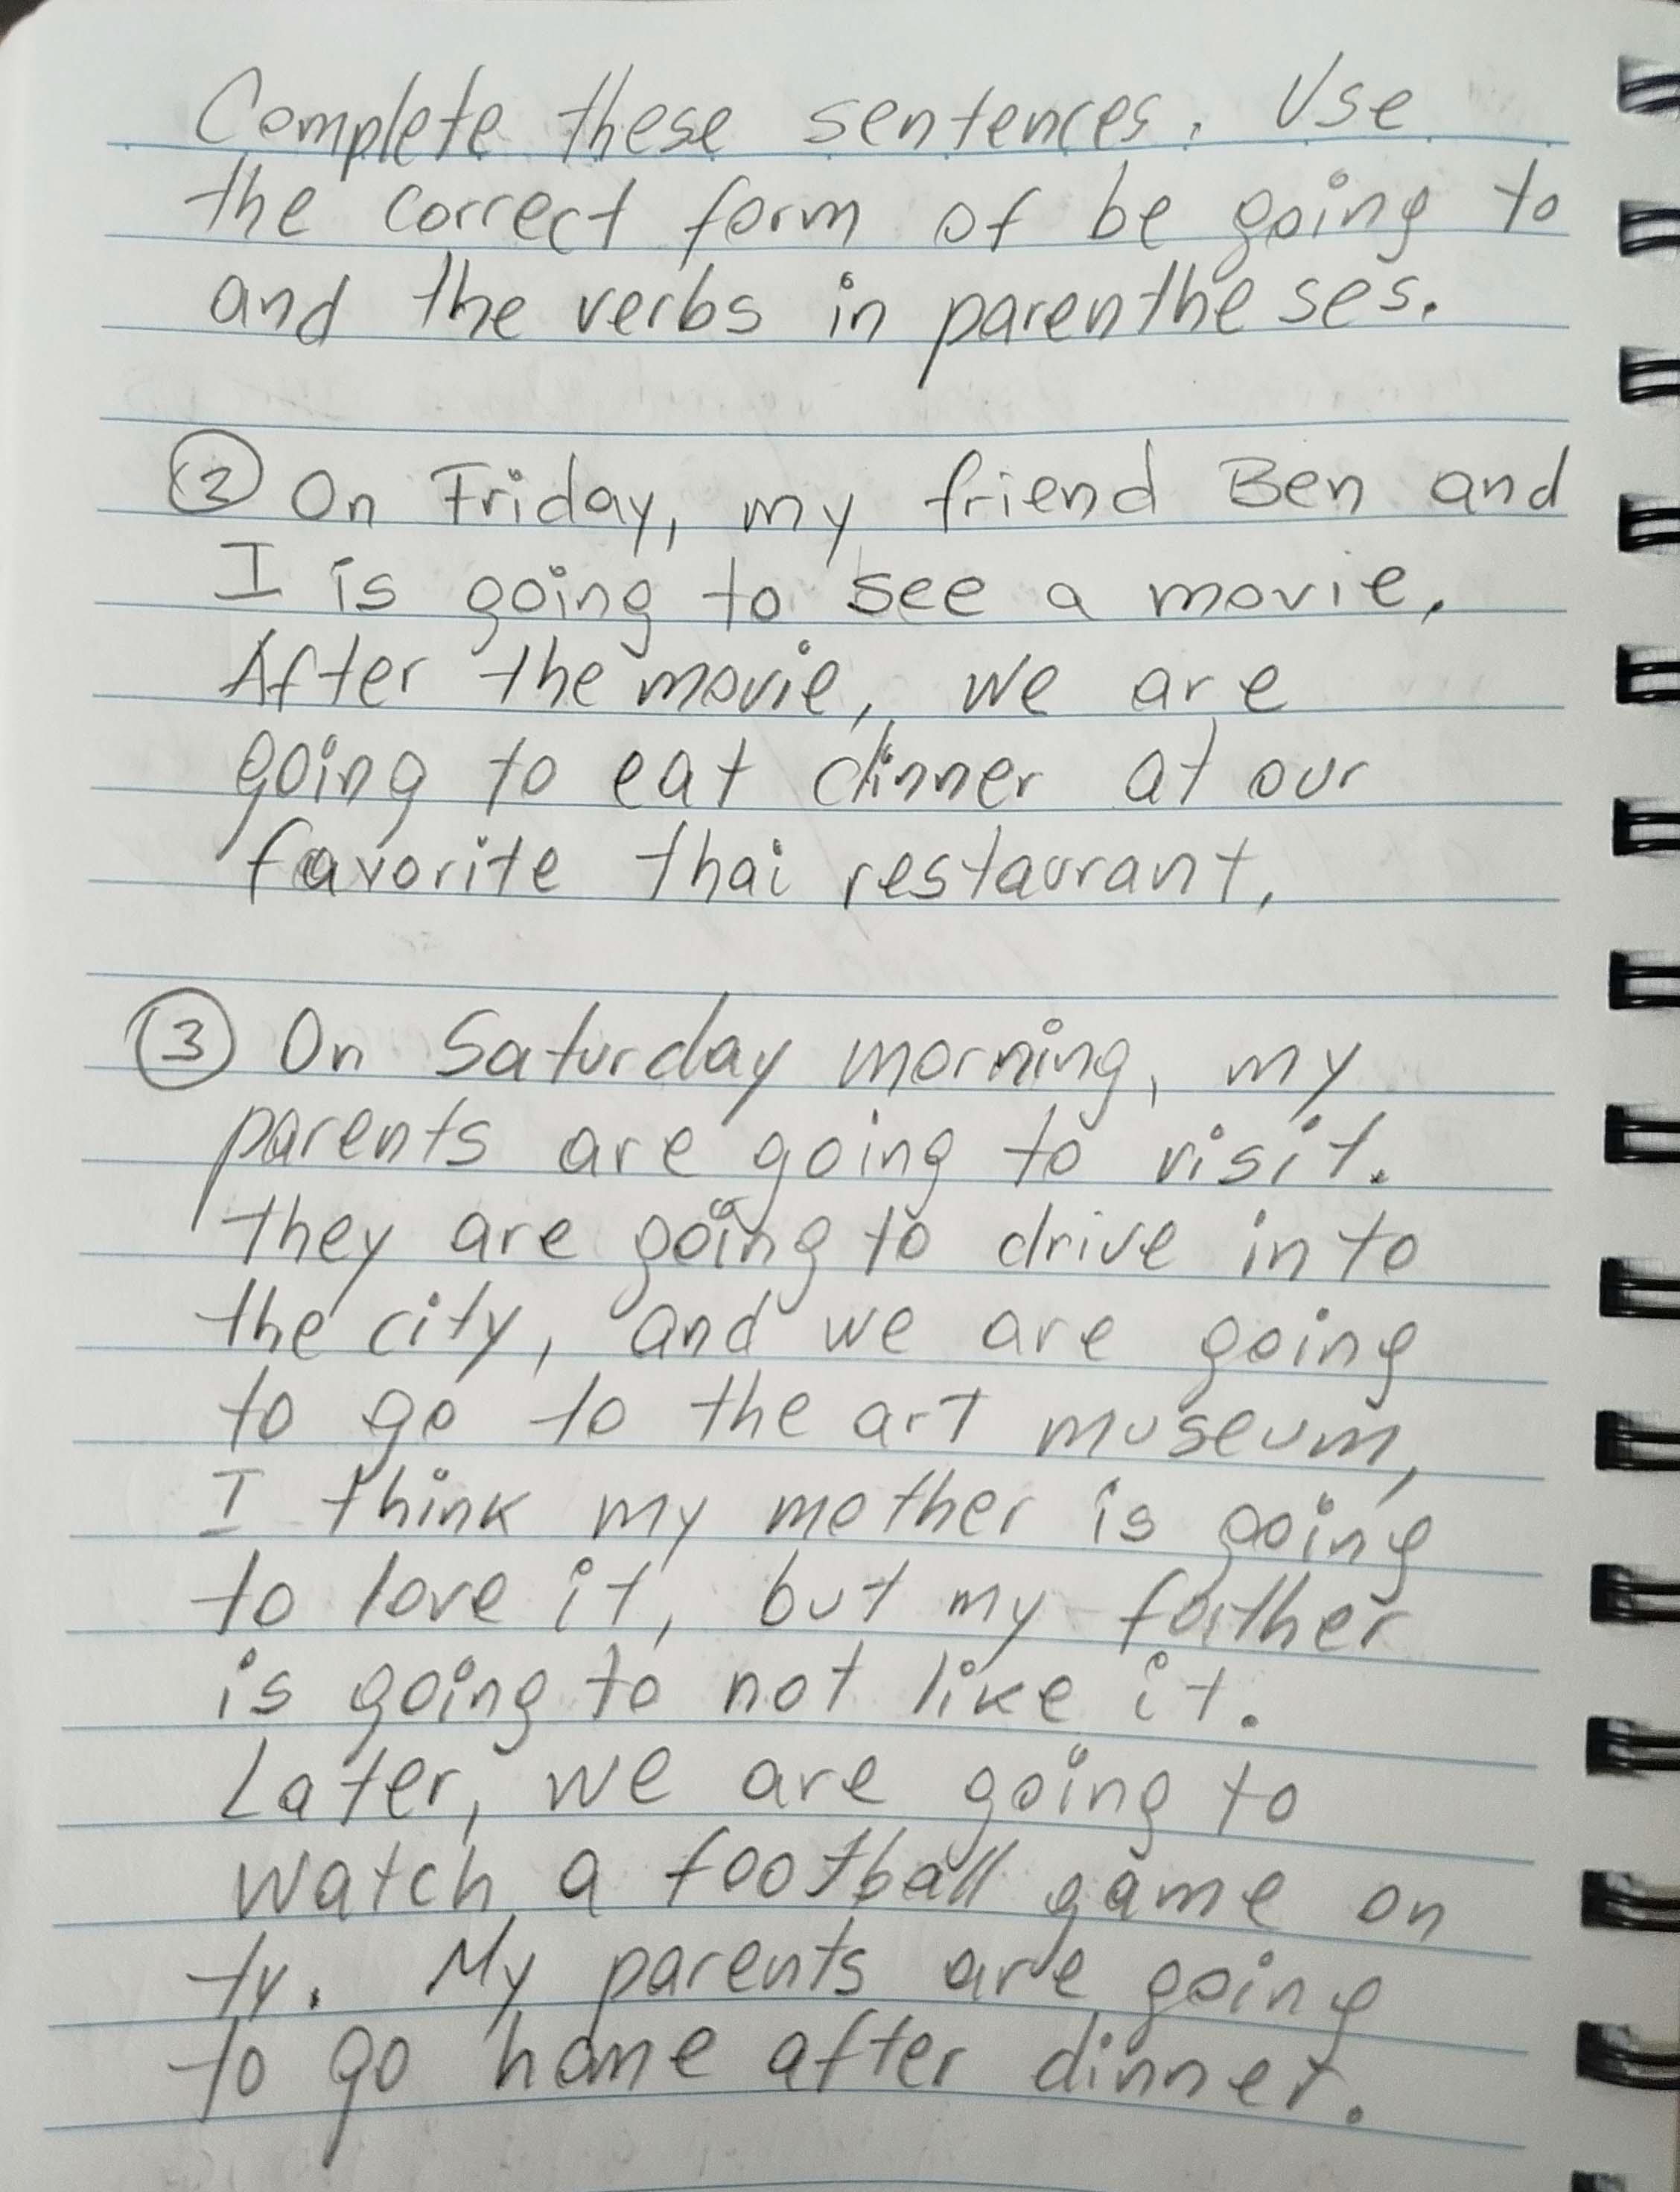 Complete these sentences. Use
the correct form of be going to
and the verbs in parentheses.
② On Friday, my friend Ben and
I is going to see a movie.
After the movie, we are
going to eat dinner at our
favorite thai restaurant.
③ On Saturday morning, my
parents are going to visit.
they are going to drive into
the city, and we are going
to go to the art museum,
I think my mother is going
to love it, but my father
is going to not like it.
Later, we are going to
watch a football game on
tv. My parents are going
to go home after dinner.